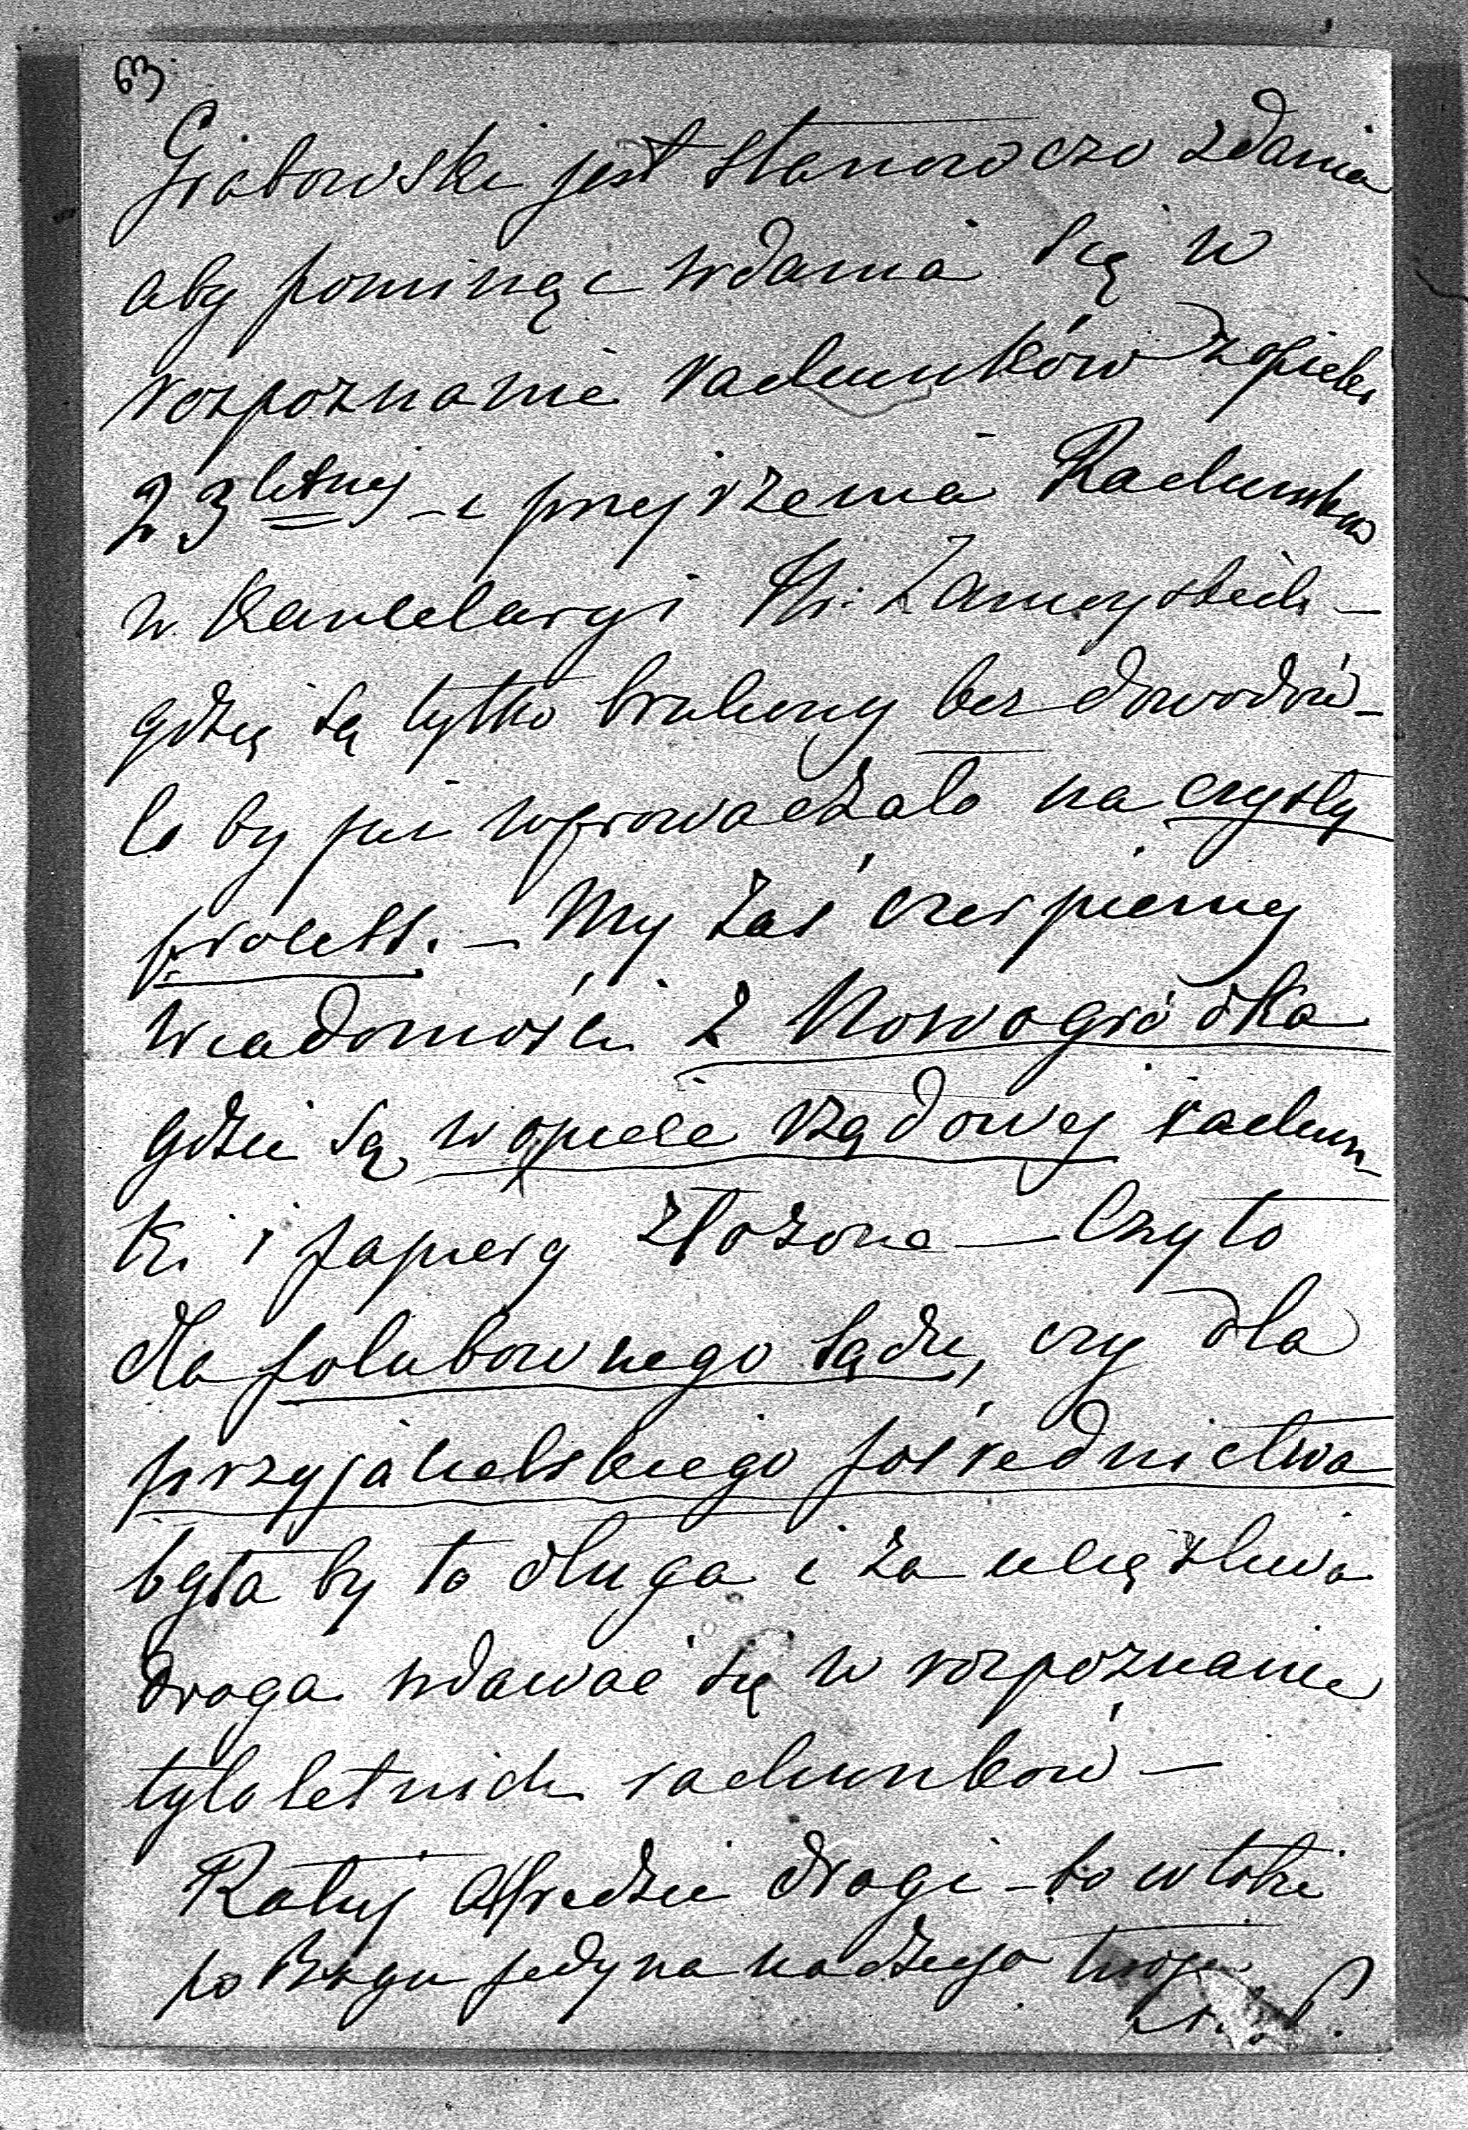 63.
Grabowski jest stanowczo zdania
aby pominąc wdania się w
rozpoznanie rachunków z opieki
23 letniej - i przejrzenia Rachunków
w Kancelaryi Hr: Zamoyskich -
gdzie są tylko bruliony bez dowodów -
to by już wprowadzało na czysty
process. - My zaś czerpiemy
wiadomości z Nowogródka
gdzie są w opiece rządowej rachun-
ki i papiery złożone - Czy to
dla polubownego sądu, czy dla
przyjacielskiego pośrednictwa
była by to długa i za uciążliwa
droga wdawać się w rozpoznanie
tyloletnich rachunków -
Ratuj Alfredzie drogi - bo w tobie
po Bogu jedyna nadzieja twoja